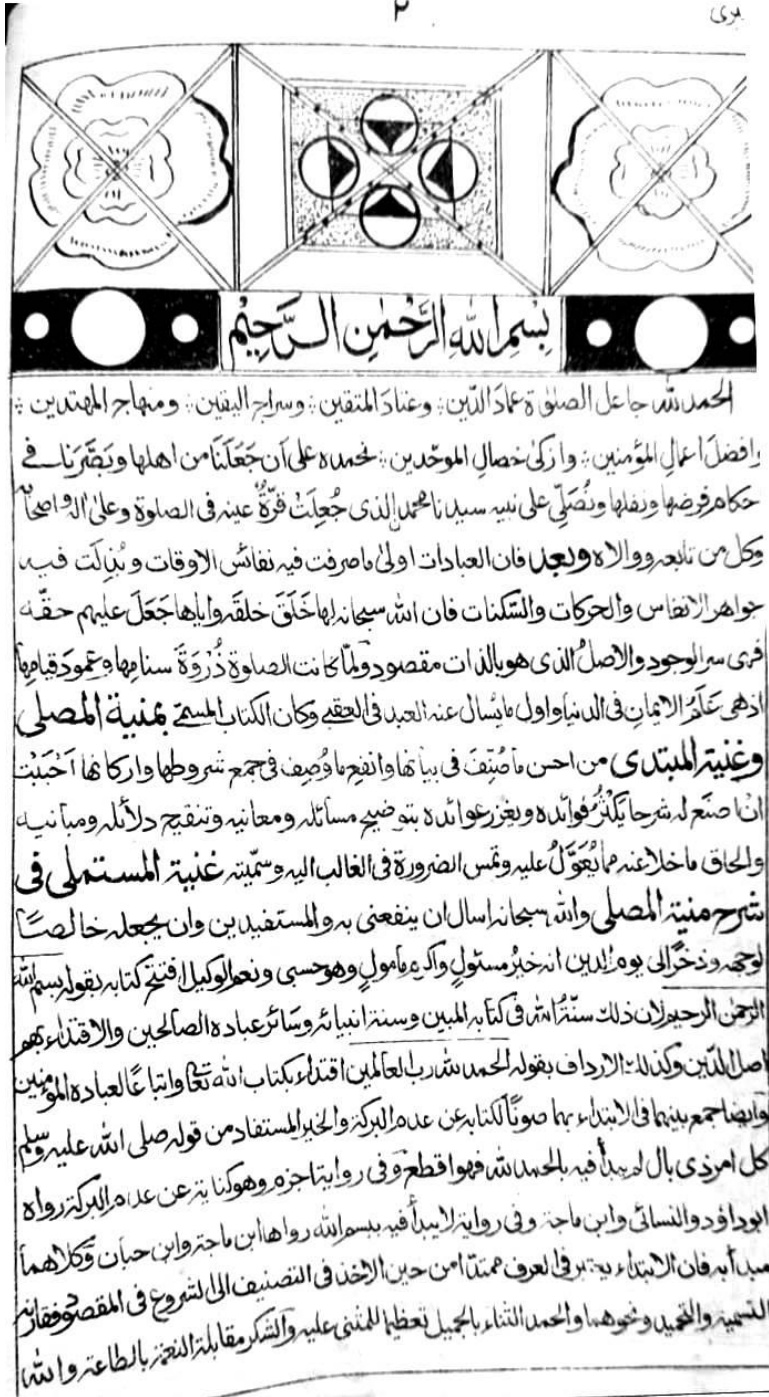 ٢
بسم الله الرحمن الرحيم
الحمد لله جاعل الصلوة عمادَ الدّين ؛ وعتادَ المتقين ؛ وسراج اليقين ؛ ومنهاج المهتدين ؛
وافضلَ اعمالِ المؤمنين ؛ وازكىٰ خصالِ الموحّدين ؛ نحمده على اَن جَعَلَنَا من اهلها وبَصَّرَنا فے
حكام فرضها ونفلها ونُصَلّي على نبيه سيدنا محمدن الذى جُعِلَتْ قرّةُ عينه فى الصلوة وعلىٰ اله واصحابه
وكل من تابعه ووالاه وبعد فان العبادات اولىٰ ماصرفت فيه نفائس الاوقات وبُذِلَت فيه
جواهر الانفاس والحركات والسّكنات فان الله سبحانه لها خَلَقَ خلقَه واياها جَعَلَ عليهم حقّه
فهى سر الوجود والاصلُ الذى هو بالذات مقصود ولمّا كانت الصلوة ذُرْوَةَ سنامها وعمودَ قيامها
اذهى عَلَمُ الايمان فى الدنيا واول مايسال عنه العبد فى العقبے وكان الكتاب المسمّے بمنية المصلى
وغنية المبتدى من احسن ماصُنِّفَ فى بيانها وانفعِ ماوُصِف فى جمع شروطها واركانها اَحْبَبْت
ان اصنع له شرحا يكثُرُ فوائده ويغزر عوائده بتوضيح مسائله ومعانيه وتنقيح دلائله ومبانيه
والحاق ماخلا عنه مما يُعَوَّلُ عليه وتمس الضرورة فى الغالب اليه وسمّيته غنية المستملى فى
شرح منية المصلى والله سبحانه اسال ان ينفعنى به والمستفيدين وان يجعله خالصًا
لوجهه وذخرًا الى يوم الدين انه خيرُ مسئولٍ واكرم مامولٍ وهو حسبى ونعم الوكيل افتتح كتابه بقوله بسم الله
الرحمٰن الرحيم لان ذلك سنّةُ الله فى كتابه المبين وسنة انبيائه وسائر عباده الصالحين والاقتداء بهم
اصل الدّين وكذلك الارداف بقوله الحمد لله رب العالمين اقتداء بكتاب الله تعالى واتباعًا لعباده المؤمنين
وايضا جمع بينهما فى الابتداء بهما صونًا لكتابه عن عدم البركة والخير المستفاد من قوله صلى الله عليه وسلم
كل امر ذى بال لم يبدأ فيه بالحمد لله فهو اقطع وفى رواية اجزم وهو كناية عن عدم البركة رواه
ابو داؤد والنسائى وابن ماجة وفى رواية لايبدأ فيه ببسم الله رواها ابن ماجة وابن حبان وكلاهما
مبدأ به فان الابتداء يعتبر فى العرف ممتدًا من حين الاخذ فى التصنيف الى الشروع فى المقصود فقارنه
التسمية والتحميد ونحوهما والحمد الثناء بالجميل تعظيما للمثنى عليه والشكر مقابلة النعمة بالطاعة والله